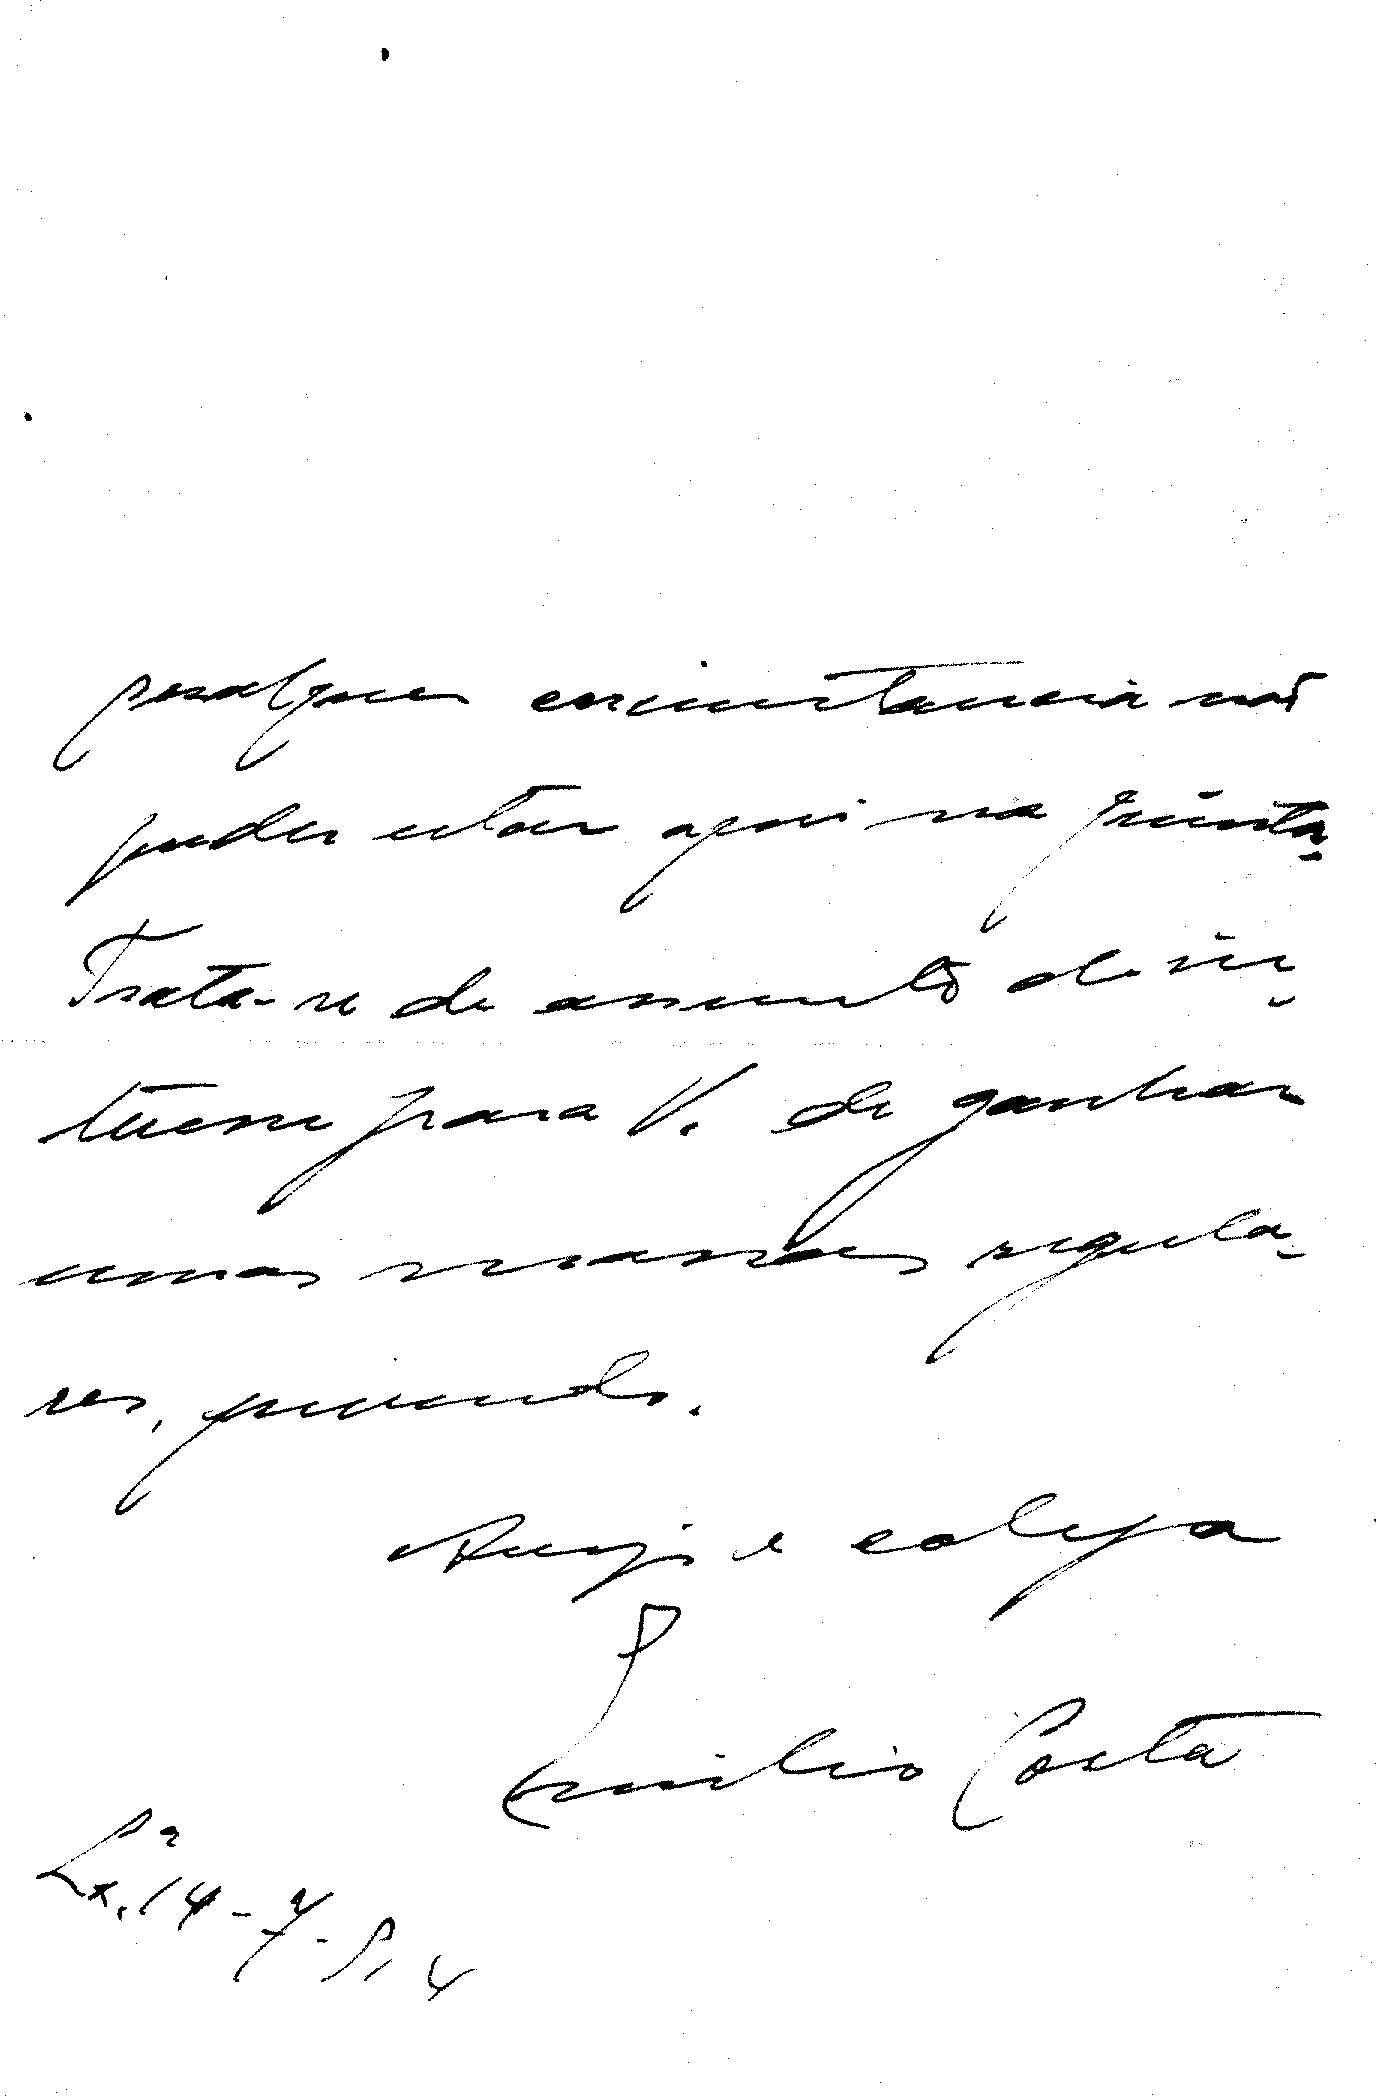 qualquer circunstancia não
puder estar aqui na quinta.
Trata-se de assunto de in-
teresse para V. de ganhar
umas massas regula-
res, querendo.
Amigo e colega
Emilio Costa
Lxª. 14-7-914